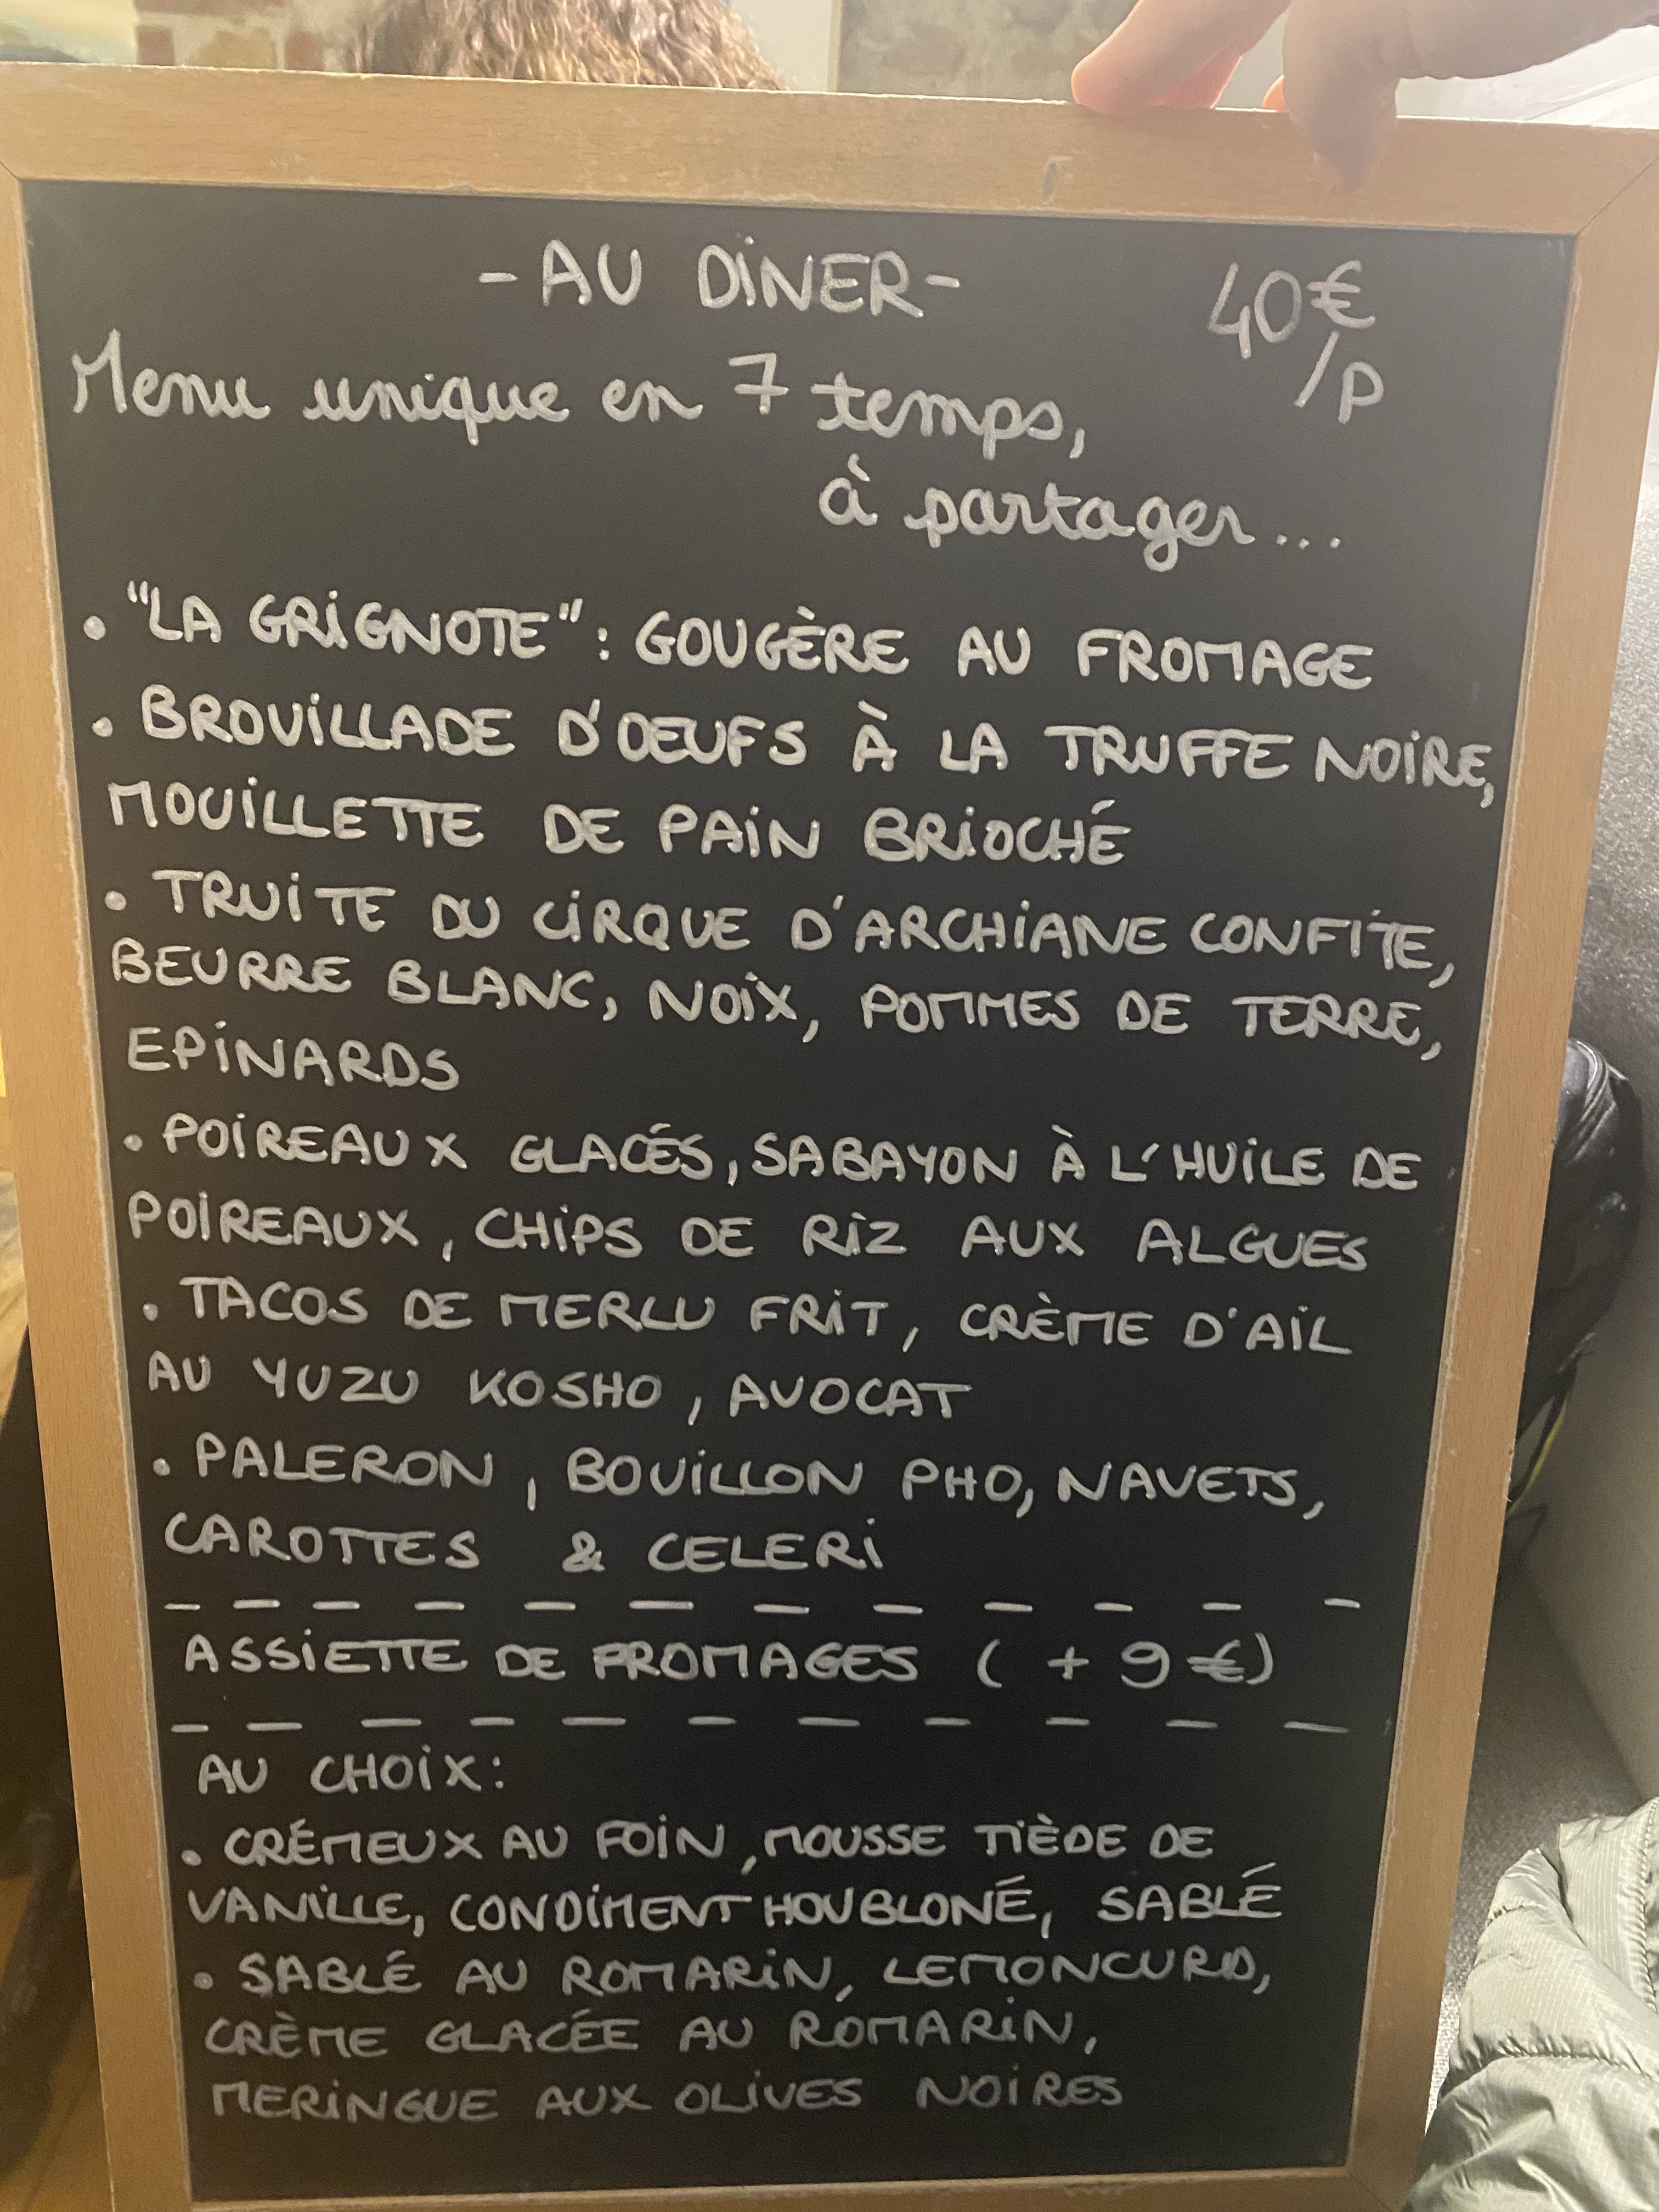 - AU DÎNER -
40€
/P
Menu unique en 7 temps,
à partager...
• "LA GRIGNOTE" : GOUGÈRE AU FROMAGE
• BROUILLADE D'OEUFS À LA TRUFFE NOIRE,
MOUILLETTE DE PAIN BRIOCHÉ
• TRUITE DU CIRQUE D'ARCHIANE CONFITE,
BEURRE BLANC, NOIX, POMMES DE TERRE,
EPINARDS
• POIREAUX GLACÉS, SABAYON À L'HUILE DE
POIREAUX, CHIPS DE RIZ AUX ALGUES
• TACOS DE MERLU FRIT, CRÈME D'AIL
AU YUZU KOSHO, AVOCAT
• PALERON, BOUILLON PHO, NAVETS,
CAROTTES & CELERI
ASSIETTE DE FROMAGES ( + 9 €)
AU CHOIX:
• CRÉMEUX AU FOIN, MOUSSE TIÈDE DE
VANILLE, CONDIMENT HOUBLONÉ, SABLÉ
• SABLÉ AU ROMARIN, LEMONCURD,
CRÈME GLACÉE AU ROMARIN,
MERINGUE AUX OLIVES NOIRES